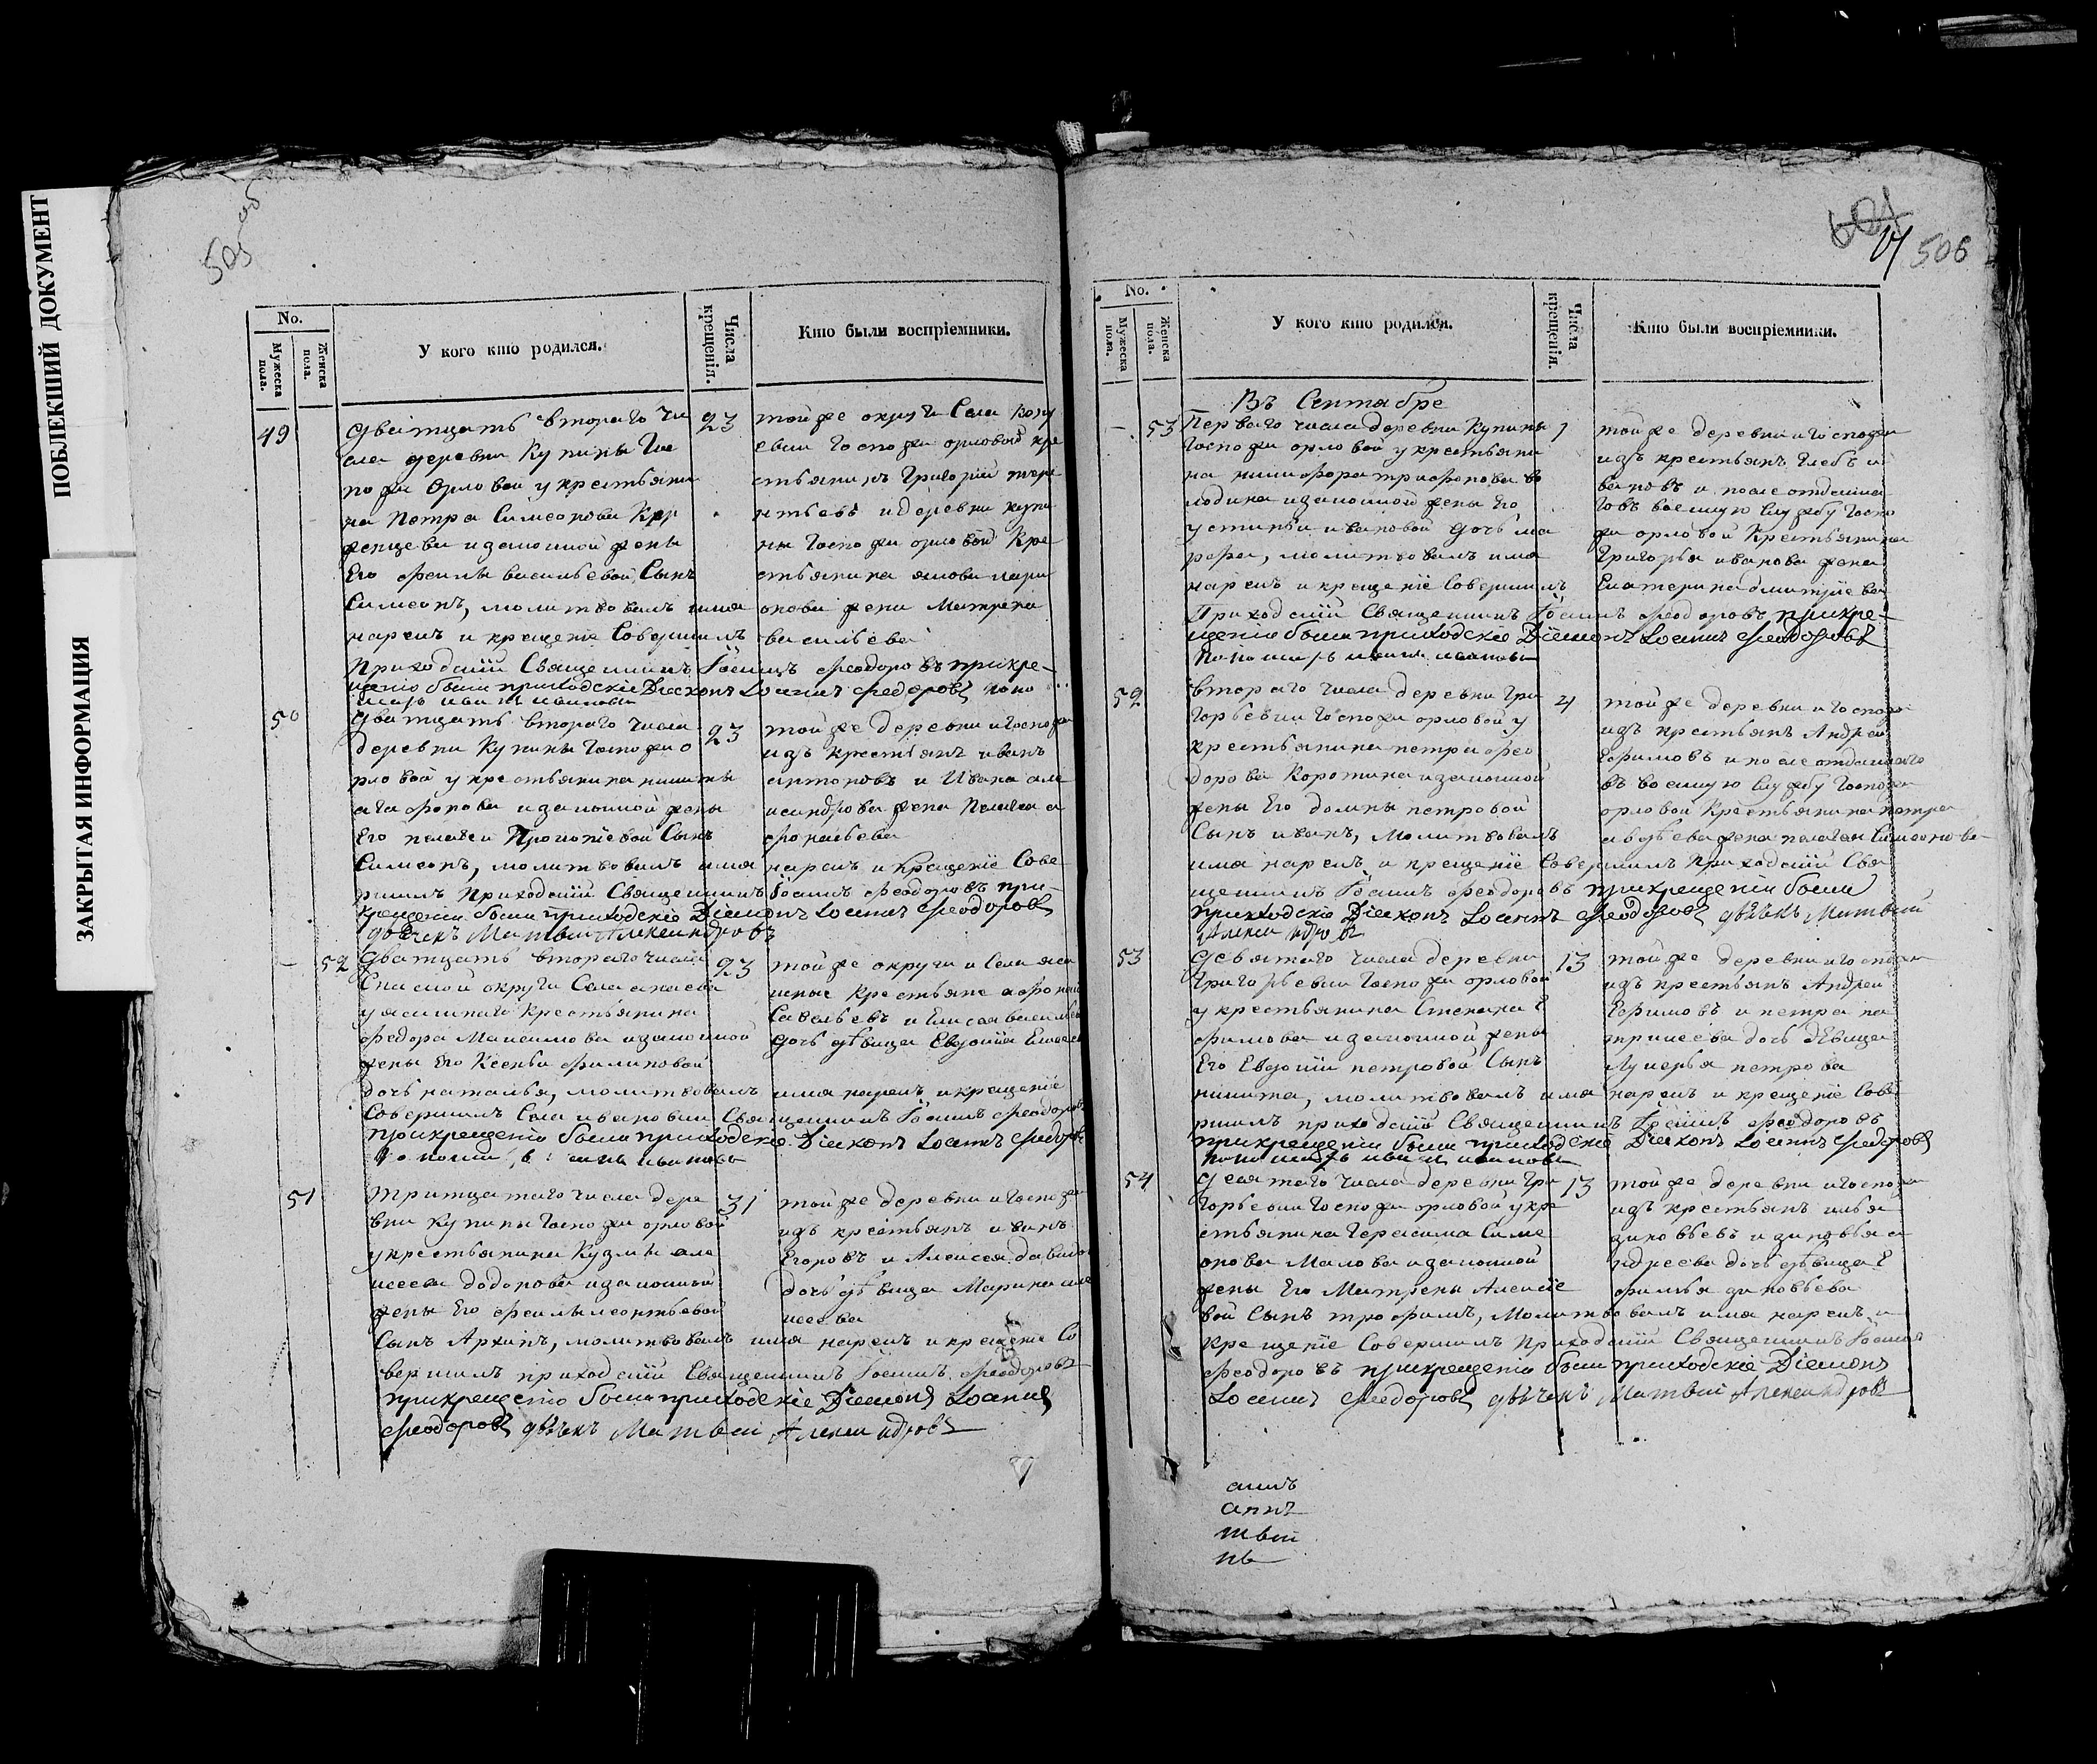 ПОБЛЕКШИЙ ДОКУМЕНТ
ЗАКРЫТАЯ ИНФОРМАЦИЯ
505 об
No.
Мужеска пола.
Женска пола.
У кого кто родился.
Числа крещенія.
Кто были воспріемники.
49
Дватцать втораго чи
сла деревни Купины Гос
пожи Орловой у крестьяни
на Петра Симеонова
и законной жены
Его Васильевой Сынъ
Симеонъ, молитвовалъ имя
нарекъ и крещеніе Совершилъ
Приходскій Священникъ Іоаннъ Феодоровъ при кре-
щеніи были приходскіе Діаконъ Іоаннъ Феодоровъ поно
марь иванъ ивановъ
23
той же округи Села
Госпожи орловой кре
стьянинъ Григорій
и деревни купи
ны Госпожи орловой Кре
стьянина
жена Матрена
васильева
50
Дватцать втораго числа
деревни Купины Госпожи о
рловой у крестьянина никиты
агафонова и законной жены
Его пелагеи Прокопіевой Сынъ
Симеонъ, молитвовалъ имя нарекъ и крещеніе Сове
ршилъ Приходскій Священникъ Іоаннъ Феодоровъ при-
крещеніи были приходскіе Діаконъ Іоаннъ Феодоровъ
дьячекъ Матвей Александровъ
23
той же деревни и госпожи
изъ крестьянъ иванъ
антоновъ и Ивана але
ксандрова жена Пелагея а
фонасьева
52
Дватцать втораго числа
Спаской округи Села
у ясашнаго крестьянина
Федора Максимова и законной
жены Его Ксеньи филиповой
дочь наталья, молитвовалъ имя нарекъ и крещеніе
Совершилъ Села ивановки Священникъ Іоаннъ Феодоровъ
при крещеніи были приходскіе Діаконъ Іоаннъ Феодоровъ
ивановъ
23
той же округи и Села яса
шные крестьяне афонасій
Савельевъ и Елисея васильева
дочь дѣвица Евдокія Елисеева
51
Тритцатаго числа дере
вни Купины Госпожи орловой
у крестьянина Кузмы але
ксеева додонова и законной
жены Его феклы леонтьевой
Сынъ Архипъ, молитвовалъ имя нарекъ и крещеніе Со
вершилъ приходскій Священникъ Іоаннъ Феодоровъ
при крещеніи были приходскіе Діаконъ Іоаннъ
Феодоровъ дьячекъ Матвей Александровъ
31
той же деревни и Госпожи
изъ крестьянъ иванъ
Егоровъ и Алексея давыдова
дочь дѣвица Марина але
ксеева
506
No.
Мужеска пола.
Женска пола.
У кого кто родился.
Числа крещенія.
Кто были воспріемники.
Въ Сентябре
53
Перваго числа деревни Купины
Госпожи орловой у крестьяни
на никифора трифонова во
лодина и законной жены Его
устиньи ивановой дочь ма
рфа, молитвовалъ имя
нарекъ и крещеніе Совершилъ
Приходскій Священникъ Іоаннъ Феодоровъ при кре-
щеніи были приходскіе Діаконъ Іоаннъ Феодоровъ
Пономарь иванъ ивановъ
1
той же деревни и госпожи
изъ крестьянъ Глебъ и
вановъ и после отданна
го въ военную службу Госпо
жи орловой Крестьянина
Григорья иванова жена
Екатерина дмитріева
52
Втораго числа деревни Гри
горьевки Госпожи орловой у
крестьянина петра фео
дорова Коротина и законной
жены Его домны петровой
Сынъ иванъ, молитвовалъ
имя нарекъ и крещеніе Совершилъ Приходскій Свя
щенникъ Іоаннъ Феодоровъ при крещеніи были
приходскіе Діаконъ Іоаннъ Феодоровъ дьячекъ Матвей
Александровъ
4
той же деревни и госпожи
изъ крестьянъ Андрей
Ефимовъ и после отданнаго
въ военную службу Госпожи
орловой Крестьянина петра
авдѣева жена пелагея Симеонова
53
Девятаго числа деревни
Григорьевки Госпожи орловой
у крестьянина Степана Е
фимова и законной жены
Его Евдокіи петровой Сынъ
никита, молитвовалъ имя нарекъ и крещеніе Сове
ршилъ приходскій Священникъ Іоаннъ Феодоровъ
при крещеніи были приходскіе Діаконъ Іоаннъ Феодоровъ
пономарь иванъ ивановъ
13
той же деревни и госпожи
изъ крестьянъ Андрей
Ефимовъ и петра па
трикеева дочь дѣвица
Лукерья петрова
54
Десятаго числа деревни Гри
горьевки Госпожи орловой у кре
стьянина Герасима Симе
онова Малова и законной
жены Его Матрены Алексіе
вой Сынъ трофимъ, Молитвовалъ имя нарекъ и
крещеніе Совершилъ Приходскій Священникъ Іоаннъ
Феодоровъ при крещеніи были приходскіе Діаконъ
Іоаннъ Феодоровъ дьячекъ Матвей Александровъ
13
той же деревни и госпожи
изъ крестьянъ илья
зиновьевъ и зиновья а
ндреева дочь дѣвица Е
фимья зиновьева
аннъ
аннъ
твей
нъ